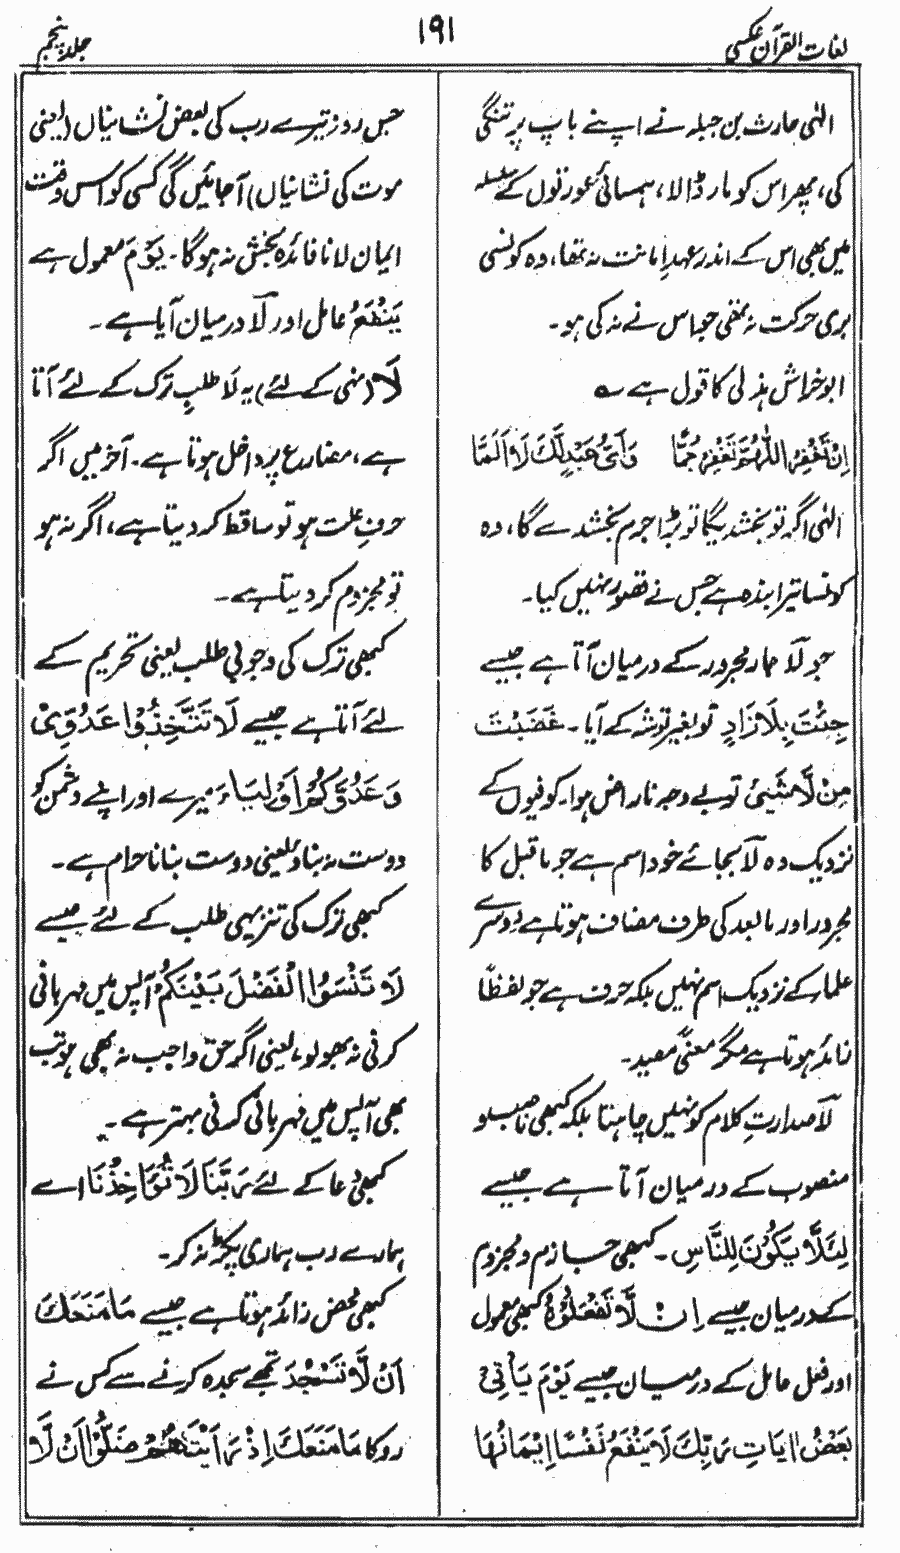 لغات القرآن عکسی
۱۹۱
جلد پنجم
الٰہی حارث بن جبلہ نے اپنے باپ پر تنگی
کی، پھر اس کو مار ڈالا، ہمسائی عورتوں کے سلسلہ
میں بھی اس کے اندر عہدِ امانت نہ تھا، وہ کونسی
بری حرکت نہ تھی جو اس نے نہ کی ہو۔
ابو خراش ہذلی کا قول ہے ؎
اِنْ تَغْفِرِ اللّٰھُمَّ تَغْفِرْ جَمَّا وَاَیُّ عَبْدٍ لَّکَ لَا اَلَمَّا
الٰہی اگر تو بخشدیگا تو بڑا جرم بخشدے گا، وہ
کونسا تیرا بندہ ہے جس نے قصور نہیں کیا۔
جو لَا جار مجرور کے درمیان آتا ہے جیسے
جِئْتَ بِلَا زَادٍ تو بغیر توشہ کے آیا۔ غَضَبْتَ
مِنْ لَّا شَیْئٍ تو بے وجہ ناراض ہوا۔ کوفیوں کے
نزدیک وہ لَا بجائے خود اسم ہے جو ماقبل کا
مجرور اور مابعد کی طرف مضاف ہوتا ہے دوسرے
علماء کے نزدیک اسم نہیں بلکہ حرف ہے جو لفظًا
زائد ہوتا ہے مگر معنًی مفید۔
لَا صدارتِ کلام کو نہیں چاہتا بلکہ کبھی ناصب و
منصوب کے درمیان آتا ہے جیسے
لِئَلَّا یَکُوْنَ لِلنَّاسِ۔ کبھی جازم و مجزوم
کے درمیان جیسے اِنْ لَّا تَفْعَلُوْہُ کبھی معمول
اور فعل عامل کے درمیان جیسے یَوْمَ یَأْتِیْ
بَعْضُ اٰیَاتِ رَبِّکَ لَا یَنْفَعُ نَفْسًا اِیْمَانُھَا
جس روز تیرے رب کی بعض نشانیاں (یعنی
موت کی نشانیاں) آجائیں گی کسی کو اس وقت
ایمان لانا فائدہ بخش نہ ہوگا۔ یَوْمَ معمول ہے
یَنْفَعُ عامل اور لَا درمیان آیا ہے۔
لَا (نہی کے لئے) یہ لَا طلبِ ترک کے لئے آتا
ہے، مضارع پر داخل ہوتا ہے۔ آخر میں اگر
حرفِ علت ہو تو ساقط کر دیتا ہے، اگر نہ ہو
تو مجزوم کر دیتا ہے۔
کبھی ترک کی وجوبی طلب یعنی تحریم کے
لئے آتا ہے جیسے لَا تَتَّخِذُوْا عَدُوِّیْ
وَعَدُوَّکُمْ اَوْلِیَاءَ میرے اور اپنے دشمن کو
دوست نہ بناؤ یعنی دوست بنانا حرام ہے۔
کبھی ترک کی تنزیہی طلب کے لئے جیسے
لَا تَنْسَوُا الْفَضْلَ بَیْنَکُمْ آپس میں مہربانی
کرنی نہ بھولو، یعنی اگر حق واجب نہ بھی ہو تب
بھی آپس میں مہربانی کرنی بہتر ہے۔
کبھی دعا کے لئے رَبَّنَا لَا تُؤَاخِذْنَا اے
ہمارے رب ہماری پکڑ نہ کر۔
کبھی محض زائد ہوتا ہے جیسے مَا مَنَعَکَ
اَنْ لَّا تَسْجُدَ تجھے سجدہ کرنے سے کس نے
روکا مَا مَنَعَکَ اِذْ رَاَیْتَھُمْ ضَلُّوْا اَنْ لَّا